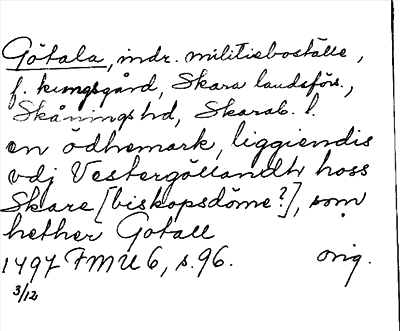 Götala, indr. militieboställe,
f. kungsgård, Skara landsförs.,
Skånings hd, Skarab. l.
en ödhemark, liggiendis
vdj Vestergöttandh hoss
Skare [biskopsdöme?], som
hether Gotall
1497 FMU 6, s. 96. orig.
3/12